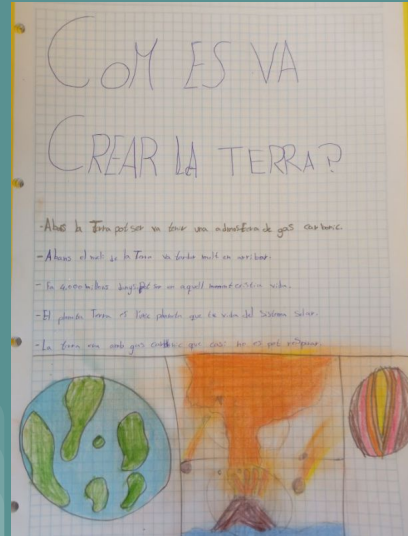 COM ES VA
CREAR LA TERRA?
-Abans la Terra pot ser va tenir una de gas carbonic.
-Abans el nucli de la Terra va tardar molt en arribar.
-Fa anys en aquell moment vida.
-El planeta Terra es l'únic planeta que la vida del Sistema Solar.
-La Terra era amb gas carbonic que casi no es pot respirar.